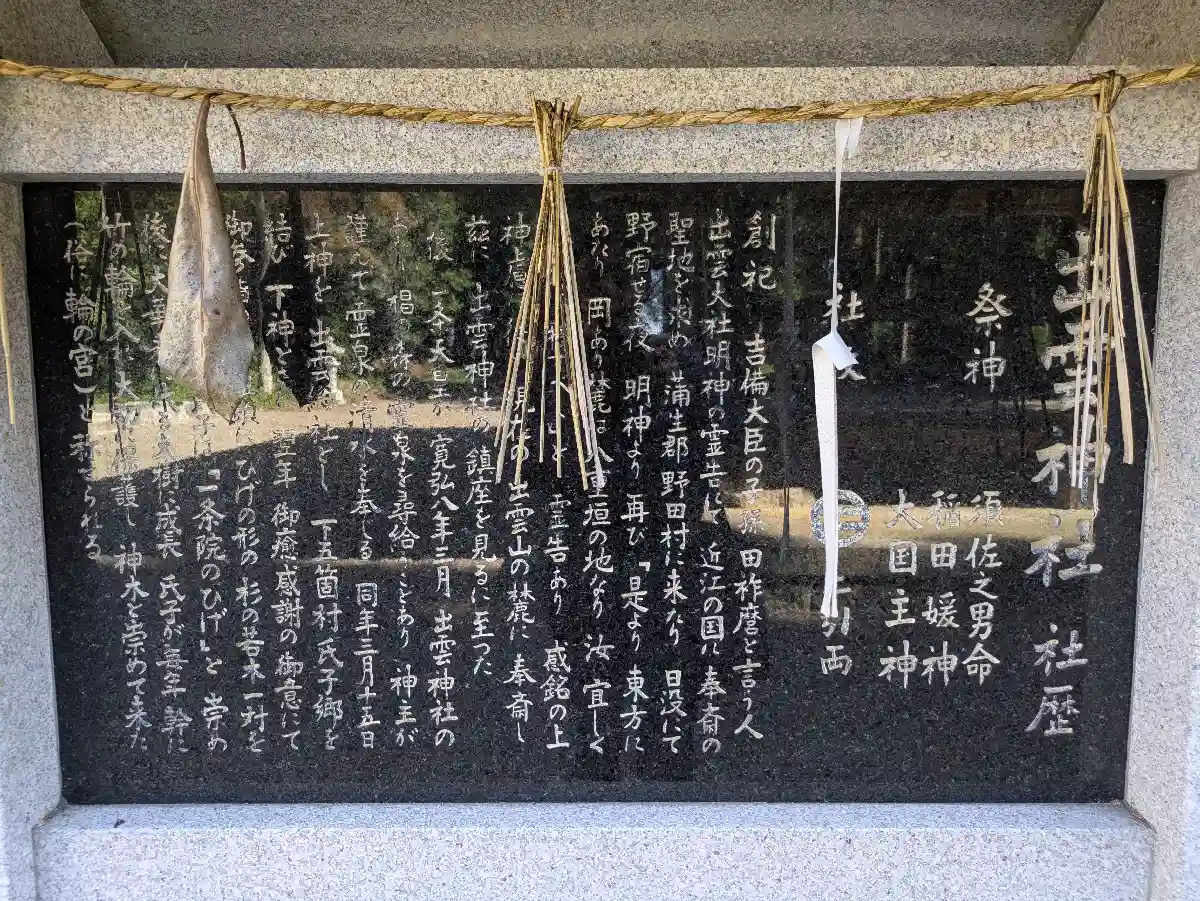 出雲神社 社歴
祭神 須佐之男命
稲田媛神
大国主神
社 二引両
創祀 吉備大臣の子孫 田祚麿と言う人
出雲大社明神の霊告に 近江の国に奉斎の
聖地を求め 蒲生郡野田村に来たり 日没にて
野宿せる夜 明神より再び「是より東方に
あたり 岡あり麓は八重垣の地なり 汝宜しく
と 霊告あり 感銘の上
神 見在の出雲山の麓に 奉斎し
茲に 出雲神社の 鎮座を見るに至った
後 一条天皇が 寛弘八年三月 出雲神社の
椙の森の霊泉を尋給うことあり 神主が
謹んで霊泉の清水を奉しる 同年三月十五日
上神を 出雲 社とし 下五箇村氏子郷を
結び 下神と 御癒感謝の御意にて
御参 ひげの形の杉の若木一対を
「一条院のひげ」と 崇め
後 大 大樹に成長 氏子が毎年 幹に
竹の輪を入 大 護し 神水を崇めて来た
(俗に輪の宮)と称せられる